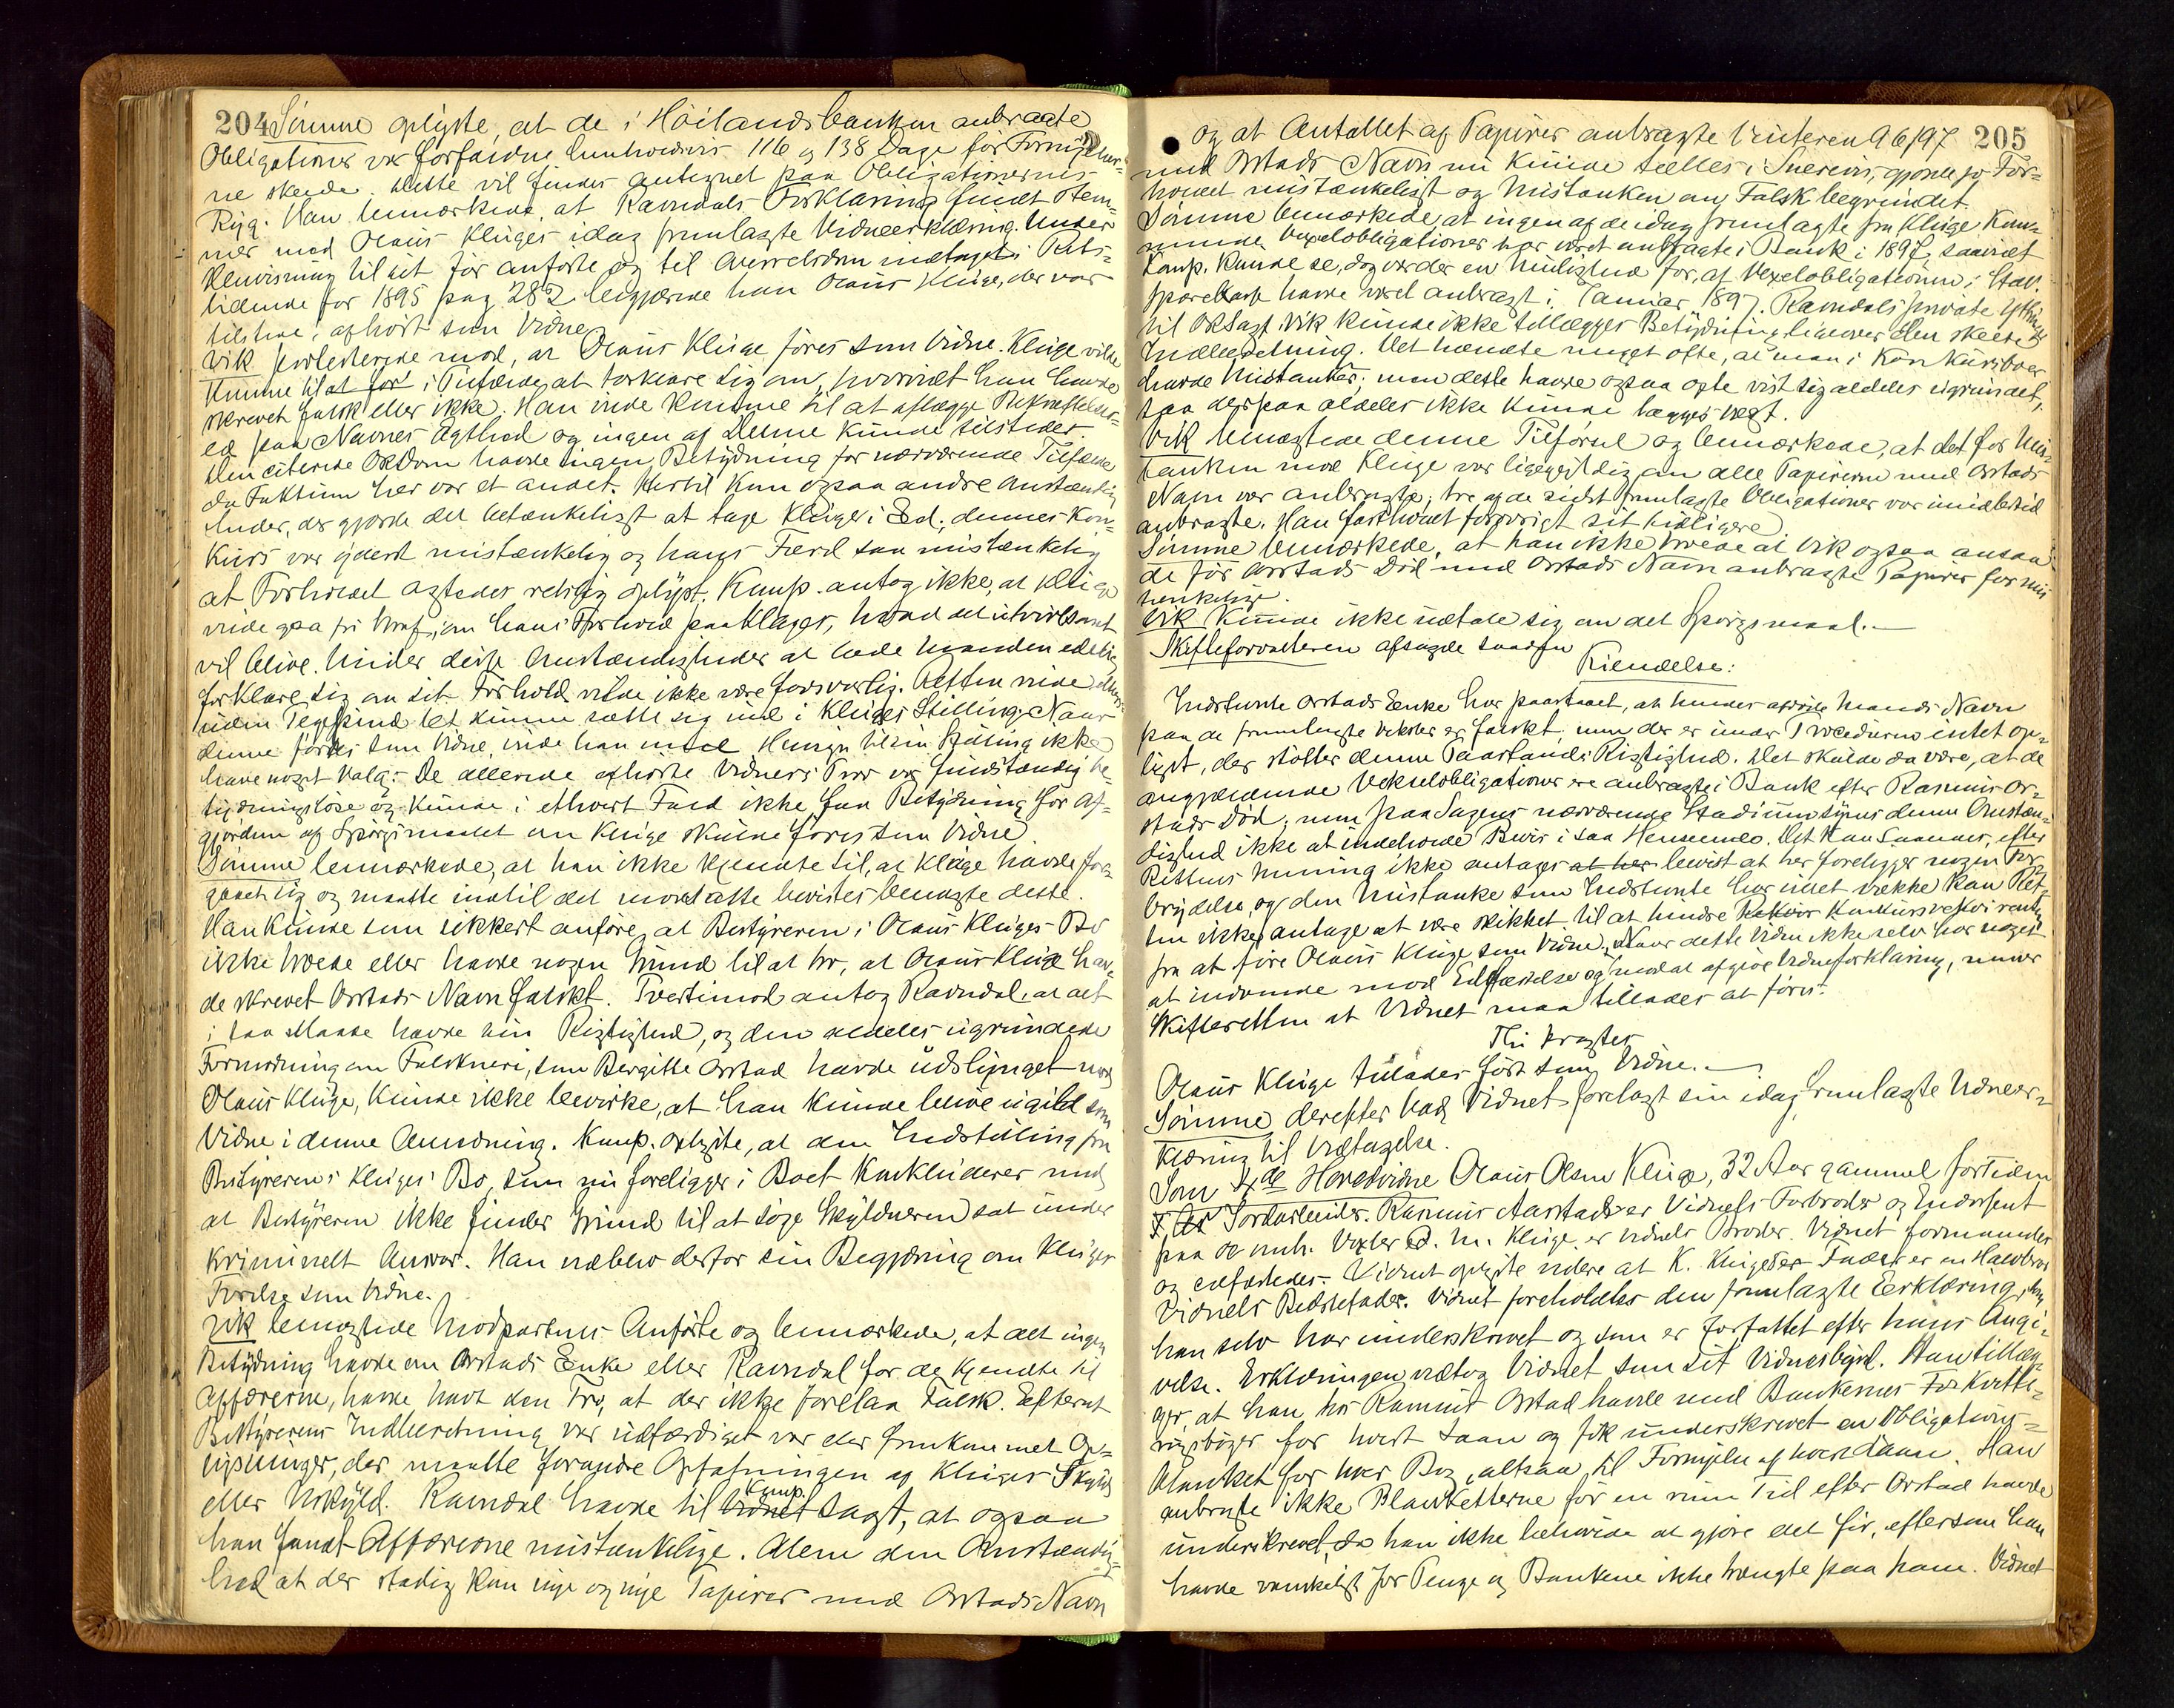 204 Sømme oplyste, at de i Höilandsbanken anbragte
Obligationer var forfaldne henholdsvis 116 og 138 Dage før Fornyelser-
ne skede. Dette vil findes antegnet paa Obligationernes
Ryg. Han bemærkede, at Ravndals Forklaring
mod Olaus Kluges idag fremlagte Vidneerklæring. Under
Henvisning til sit før anførte og til Overretsdom indtaget i Rets-
tidende for 1895 pag 282 begjærede han Olaus Kluge, der var
tilstede, afhørt som Vidne.
Vik protesterede mod, at Olaus Kluge føres som Vidne. Kluge vilde
komme til at i Tilfælde at forklare sig om, hvorvidt han havde
skrevet falsk eller ikke. Han vilde komme til at aflægge Bekræftelses-
ed paa Navnes Ægthed og ingen af Delene kunde tilstedes.
Den citerede ORDom havde ingen Betydning for nærværende Tilfælde
da Faktum her var et andet. Hertil kom ogsaa andre Omstændig-
heder, der gjorde det betænkeligt at tage Kluge i Ed; dennes Kon-
kurs var yderst mistænkelig og hans Færd saa mistænkelig
at Forholdet agtedes retslig oplyst. Komp. antog ikke, at Kluge
vilde gaa fri Straf, om hans Forhold paaklages, hvad det utvivlsomt
vil blive. Under disse Omstændigheder at lade Manden edelig
forklare sig om sit Forhold vilde ikke være forsvarlig. Retten vilde
uden Tegn kunne sætte sig ind i Kluges Stilling. Naar
denne førtes som Vidne, vilde han med Hensyn til sin Stilling ikke
have noget Valg. De allerede afhørte Vidners Tro var fuldstændig be-
tydningsløse og kunde i ethvert Fald ikke faa Betydning for Af-
gjørelsen af Spørgsmaalet om Kluge skulde føres som Vidne.
Sømme bemærkede, at han ikke kjendte til, at Kluge havde for-
gaaet sig og maatte indtil det modsatte bevistes benægte dette.
Han kunde som sikkert anføre, at Bestyreren i Olaus Kluges Bo
ikke troede eller havde nogen Grund til at tro, at Olaus Kluge hav-
de skrevet Orstads Navn falskt. Tvertimod antog Ravndal, at alt
i saa Maade havde sin Rigtighed, og den aldeles ugrundede
Formodning om Falskneri, som Bergitte Orstad havde udslynget mod
Olaus Kluge, kunde ikke bevirke, at han kunde blive ugild som
Vidne i denne Anledning. Komp. oplyste, at den Indstilling fra
Bestyreren i Kluges Bo, som nu foreligger i Boet konkluderer med
at Bestyreren ikke finder Grund til at søge Skyldneren sat under
kriminelt Ansvar. Han vedblev derfor sin Begjæring om Kluges
Førelse som Vidne.
Vik benægtede Modpartens Anførte og bemærkede, at det ingen
Betydning havde om Orstads Enke eller Ravndal før de kjendte til
Affærerne, havde havt den Tro, at der ikke forelaa Falsk. Efterat
Bestyrerens Indberetning var udfærdiget var der fremkommet Op-
lysninger, der maatte forandre Opfatningen af Kluges Skyld
eller Uskyld. Ravndal havde til Vidnet Komp. sagt, at ogsaa
han fandt Affærerne mistænkelige. Alene den Omstændig-
hed at der stadig kom nye og nye Papirer med Orstads Navn
og at Antallet af Papirer anbragte Vinteren 96/97 205
med Orstads Navn nu kunde tælles i Snesevis, gjorde jo For-
holdet mistænkeligt og Mistanken om Falsk begrundet.
Sømme bemærkede at ingen af de idag fremlagte fra Kluge kom-
mende Vexelobligationer har været anbragte i Bank i 1897, saavidt
Komp. kunde se, dog var der en Mulighed for, at Vexelobligationen i Stav.
Sparekasse havde været anbragt i Januar 1897. Ravndals private Ytringer
til ORSagf. Vik kunde ikke tillægges Betydning ligeoverfor den skede
Indberetning. Det hændte meget ofte, at man i Konkursboer
havde Mistanker; men dette havde ogsaa ofte vist sig aldeles ugrundet,
saa derpaa aldeles ikke kunde lægges Vegt.
Vik benægtede denne Tilførsel og bemærkede, at det for Mis-
tanken mod Kluge var ligegyldig om alle Papirerne med Orstads
Navn var anbragte; tre af de sidst fremlagte Obligationer var imidlertid
anbragte. Han fastholdt forøvrigt sit tidligere.
Sømme bemærkede, at han ikke troede at Vik ogsaa ansaa
de før Orstads Död med Orstads Navn anbragte Papirer for mis-
tænkelige.
Vik kunde ikke udtale sig om det Spørgsmaal.—
Skifteforvalteren afsagde saadan
Kjendelse:
Indstevnte Orstads Enke har paastaaet, at hendes afdøde Mands Navn
paa de fremlagte Veksler er falskt, men der er under Proceduren intet op-
lyst, der støtter denne Paastands Rigtighed. Det skulde da være, at de
angjældende Vekselobligationer ere anbragte i Bank efter Rasmus Or-
stads Död; men paa Sagens nærværende Stadium synes denne Omstæn-
dighed ikke at indeholde Bevis i saa Henseende. Det kan saaledes, efter
Rettens Mening ikke antages at her bevist at her foreligger nogen For-
brydelse, og den Mistanke som Indstevnte har villet vække kan Ret-
ten ikke antage at være skikket til at hindre Konkursrekvirenten
fra at føre Olaus Kluge som Vidne. Naar dette Vidne ikke selv har noget
at indvende mod Edfæstelse og mod at afgive Vidneforklaring, mener
Skifteretten at Vidnet maa tillades at føres.
Thi kragtes
Olaus Kluge tillades ført som Vidne.—
Sømme derefter bad Vidnet forelagt sin idag fremlagte Vidneer-
klæring til Vedtagelse.
Som 4de Hovedvidne Olaus Olsen Kluge, 32 Aar gammel for Tiden
Jordarbeider. Rasmus Aarstad er Vidnets Farbroder og Endossent
paa de omh. Vexler O. M. Kluge er Vidnets Broder. Vidnet formanedes
og edfæstedes. Vidnet oplyste videre at K. Kluges Fader er en Halvbror
Vidnets Bedstefader. Vidnet foreholdtes den fremlagte Erklæring, som
han selv har underskrevet og som er forfattet efter hans Angi-
velse. Erklæringen vedtog Vidnet som sit Vidnesbyrd. Han tillæg-
ger, at han hos Rasmus Orstad havde med Bankernes Kvitte-
ringsbøger for hvert Laan og fik underskrevet en Obligations-
blanket for hver Bog, altsaa til Fornyelse af hvert Laan. Han
anbragte ikke Blanketterne før en rum Tid efter Orstad havde
underskrevet, da han ikke behøvede at gjøre det før, eftersom han
havde vanskeligt for Penge og Bankene ikke trængte paa ham. Vidnet